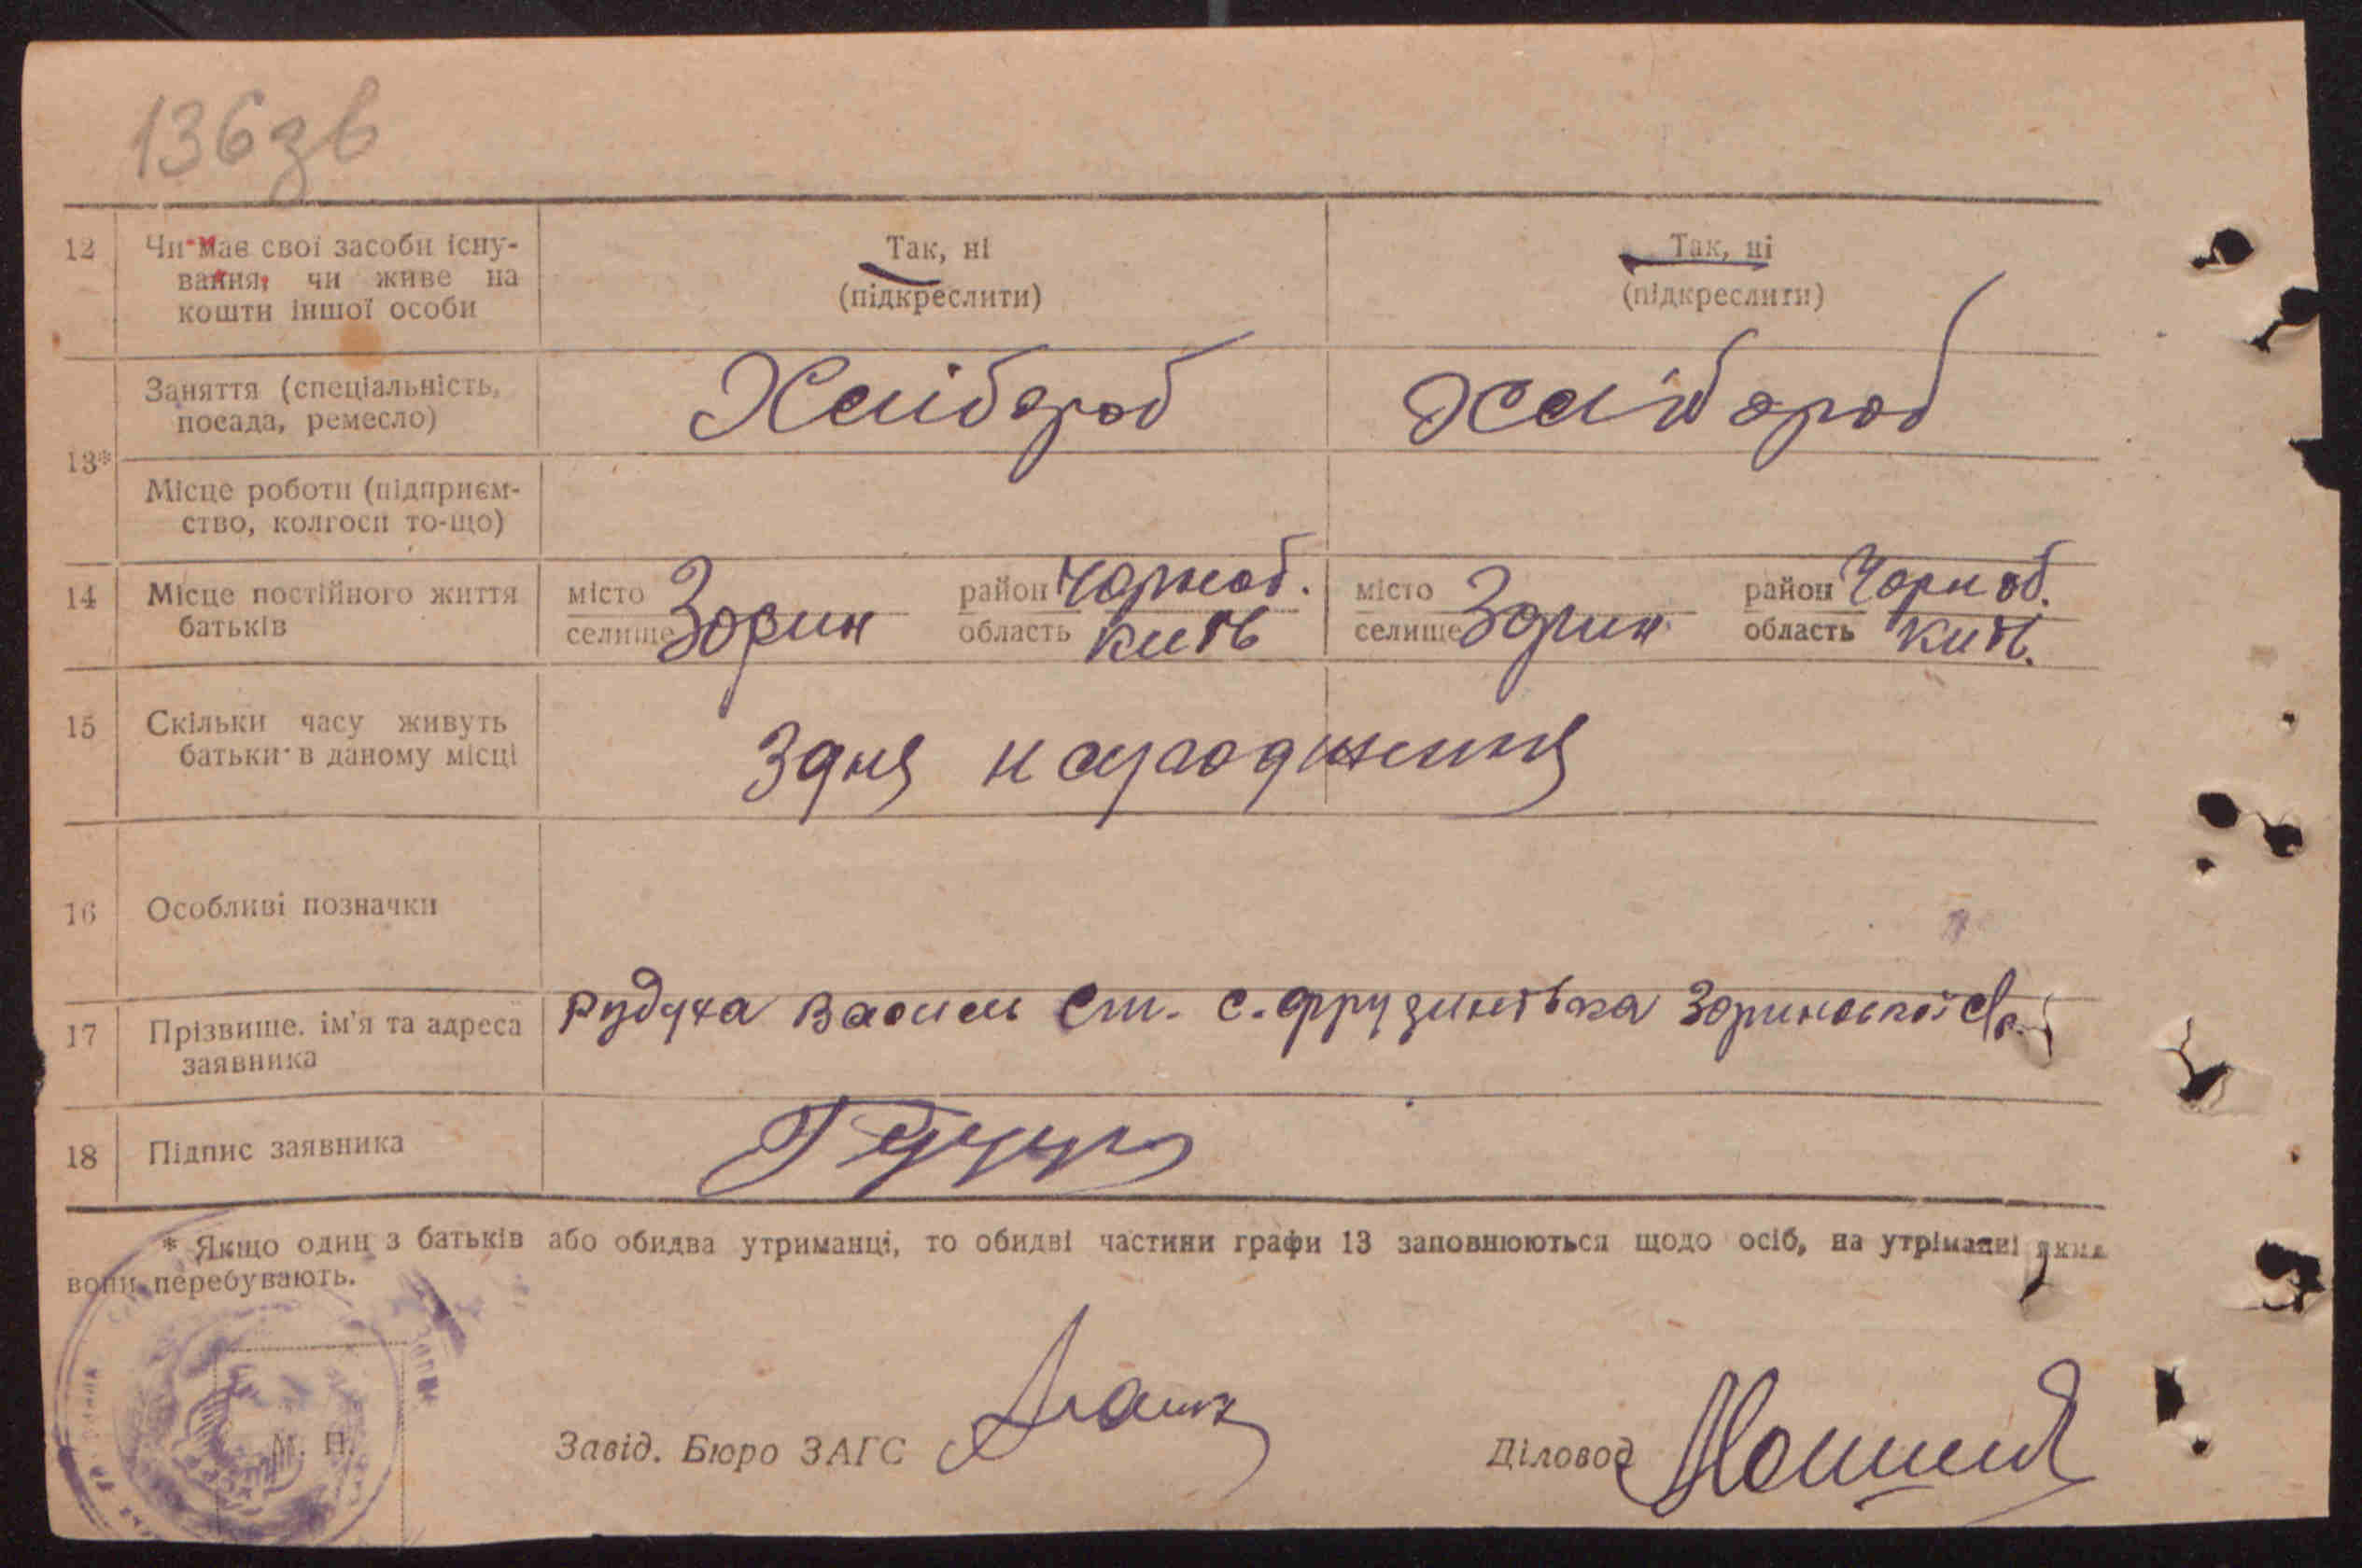 136зв
12 Чи має свої засоби існу-
вання, чи живе на
кошти іншої особи
Так, ні
(підкреслити)
Так, ні
(підкреслити)
13*
Заняття (спеціальність,
посада, ремесло)
Хлібороб
Хлібороб
Місце роботи (підприєм-
ство, колгосп то-що)
14 Місце постійного життя
батьків
місто
селище Зорин
район Чорноб.
область Київ
місто
селище Зорин
район Чорноб.
область Київ.
15 Скільки часу живуть
батьки в даному місці
З дня народження
16 Особливі позначки
17 Прізвище, ім'я та адреса
заявника
Рудуха Василь Ст. с. Фрузинівка Зоринської с/р
18 Підпис заявника
* Якщо один з батьків або обидва утриманці, то обидві частини графи 13 заповнюються щодо осіб, на утріманні яких
вони перебувають.
М. П.
Завід. Бюро ЗАГС
Діловод